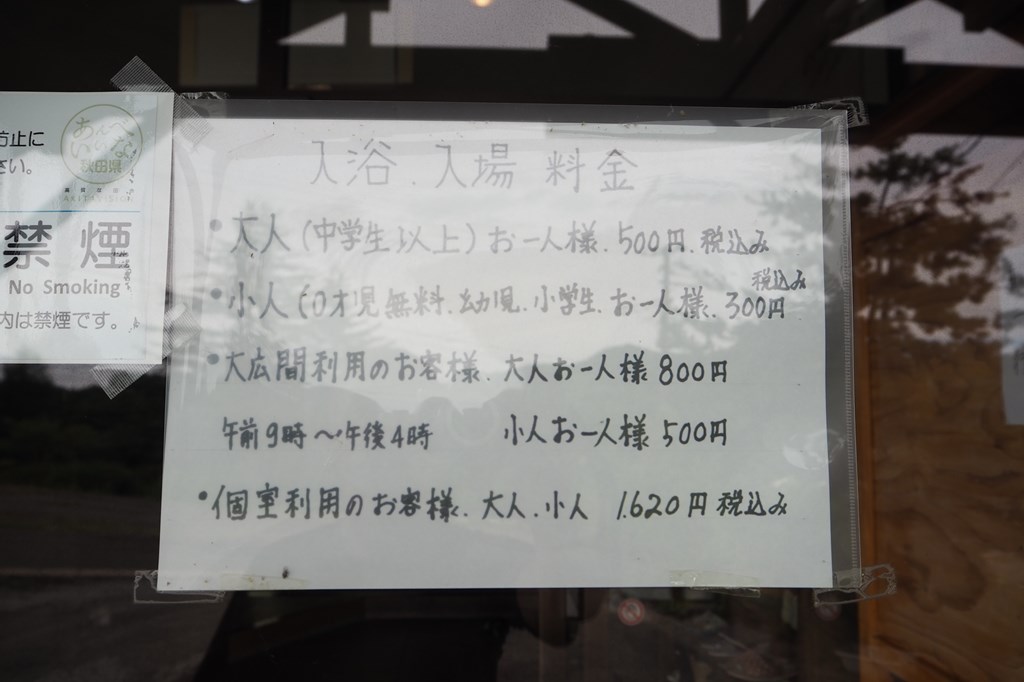 方止に
さい。
あんべ
いいのな
秋田県
AKITAVISION
禁煙
No Smoking
内は禁煙です。
入浴.入場 料金
・大人(中学生以上)お一人様.500円.税込み
税込み
・小人(0才児無料.幼児.小学生.お一人様.300円
・大広間利用のお客様.大人お一人様800円
午前9時〜午後4時 小人お一人様500円
・個室利用のお客様.大人.小人 1.620円税込み